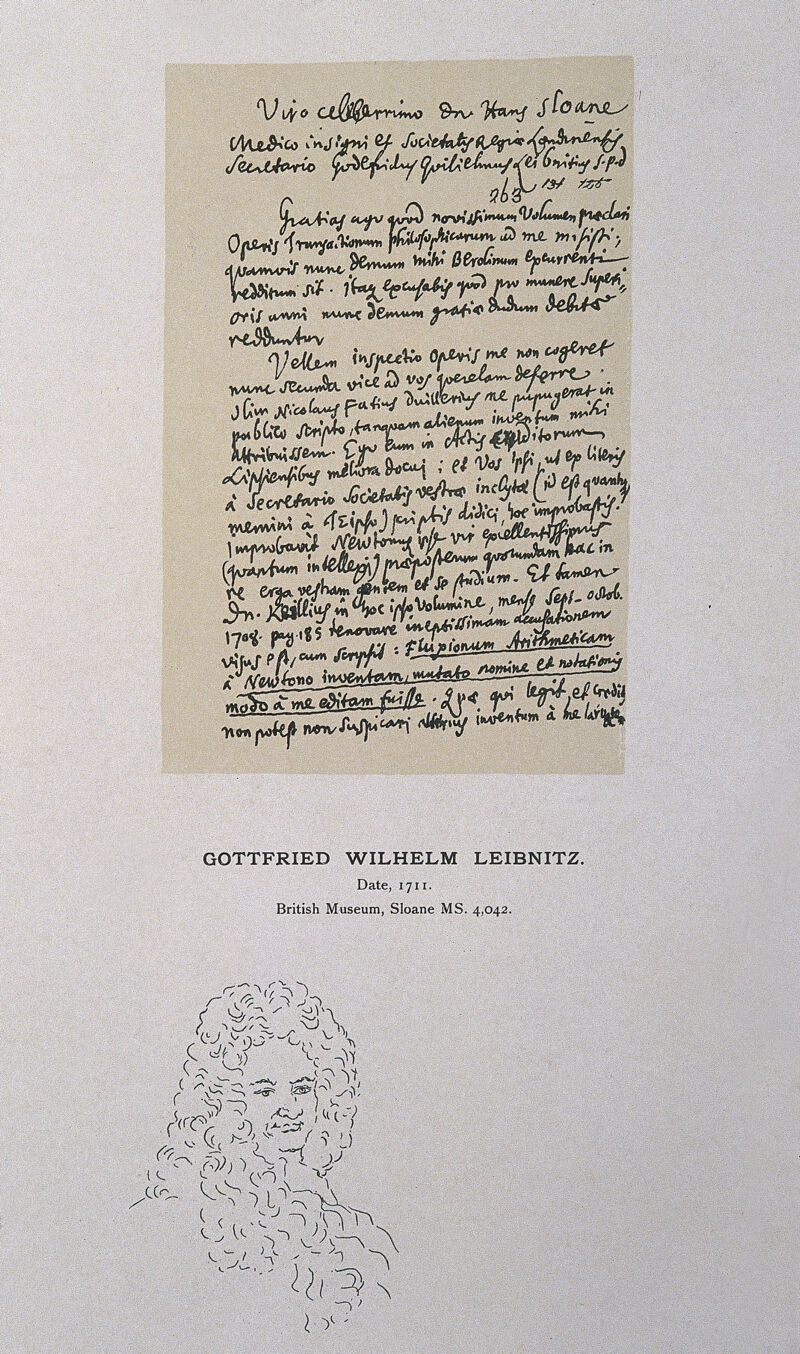 Viro celeberrimo Dn. Hans Sloane
Medico insigni et Societatis Regiæ Londinensis
Secretario Godefridus Guilielmus Leibnitius s.p.d
263
Gratias ago quod novissimum Volumen præclari
Operis Transactionum philosophicarum ad me misisti;
quamvis nunc demum mihi Berolinum excurrenti
redditum sit. Itaq excusabis quod pro munere superi=
oris anni nunc demum gratiæ dudum debitæ
redduntur
Vellem inspectio Operis me non cogeret
nunc secunda vice ad vos querelam deferre.
Olim Nicolaus Fatius Duillerius me pupugerat in
publico scripto, tanquam alienum inventum mihi
attribuissem. Ego eum in Actis Eruditorum
Lipsiensibus meliora docui; et Vos ipsi, ut ex literis
à Secretario Societatis vestræ inclytæ (id est quantum
memini à Te ipso) scriptis didici, hoc improbastis.
Improbavit Newtonus ipse vir excellentissimus
(quantum intellexi) præposterum quorundam hac in
re erga vestram gentem et se studium. Et tamen
Dn. Keillius in hoc ipso Volumine, mense Sept- octob.
1708. pag. 185 renovare ineptissimam accusationem
visus est, cum scripsit: Fluxionum Arithmeticam
à Newtono inventam, mutato nomine et notationis
modo à me editam fuisse. Quæ qui legit, et credit
non potest non suspicari alterius inventum à me
GOTTFRIED WILHELM LEIBNITZ.
Date, 1711.
British Museum, Sloane MS. 4,042.